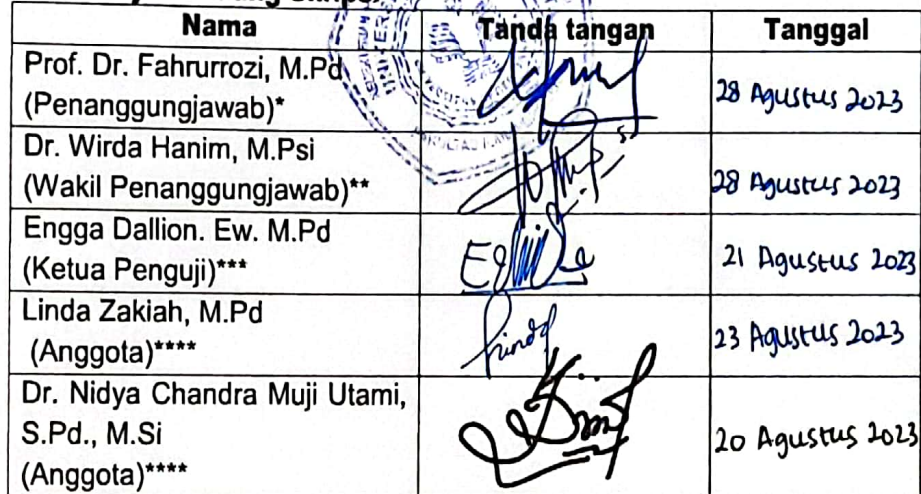 Nama Tanda tangan Tanggal
Prof. Dr. Fahrurrozi, M.Pd
(Penanggungjawab)* 28 Agustus 2023
Dr. Wirda Hanim, M.Psi
(Wakil Penanggungjawab)** 28 Agustus 2023
Engga Dallion. Ew. M.Pd
(Ketua Penguji)*** 21 Agustus 2023
Linda Zakiah, M.Pd
(Anggota)**** 23 Agustus 2023
Dr. Nidya Chandra Muji Utami,
S.Pd., M.Si 20 Agustus 2023
(Anggota)****